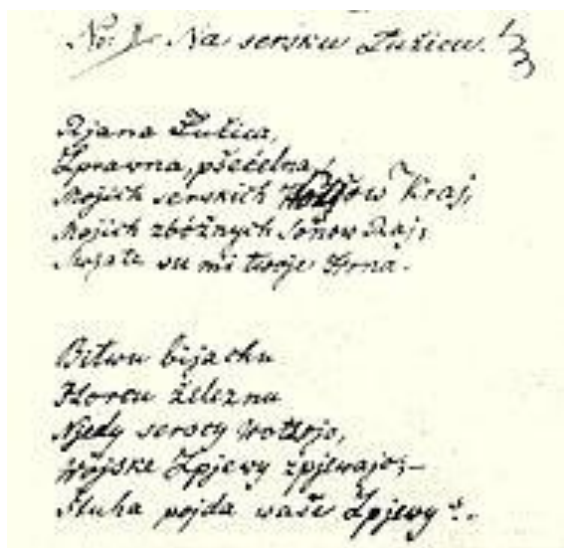 No: 1 Na sersku Łužicu!
Rjana Łužica,
Zprawna, pšećelna,
Mojich serskich Kraj,
Mojich zbóžnych Sonow Raj,
Swjate su mi twoje Hona.
Bitwu bijachu
Horcu železnu
Njedy serscy Wotzojo,
Wójske Zpjewy zpjewajo;—
Štuha pojda waše Zpjewy?